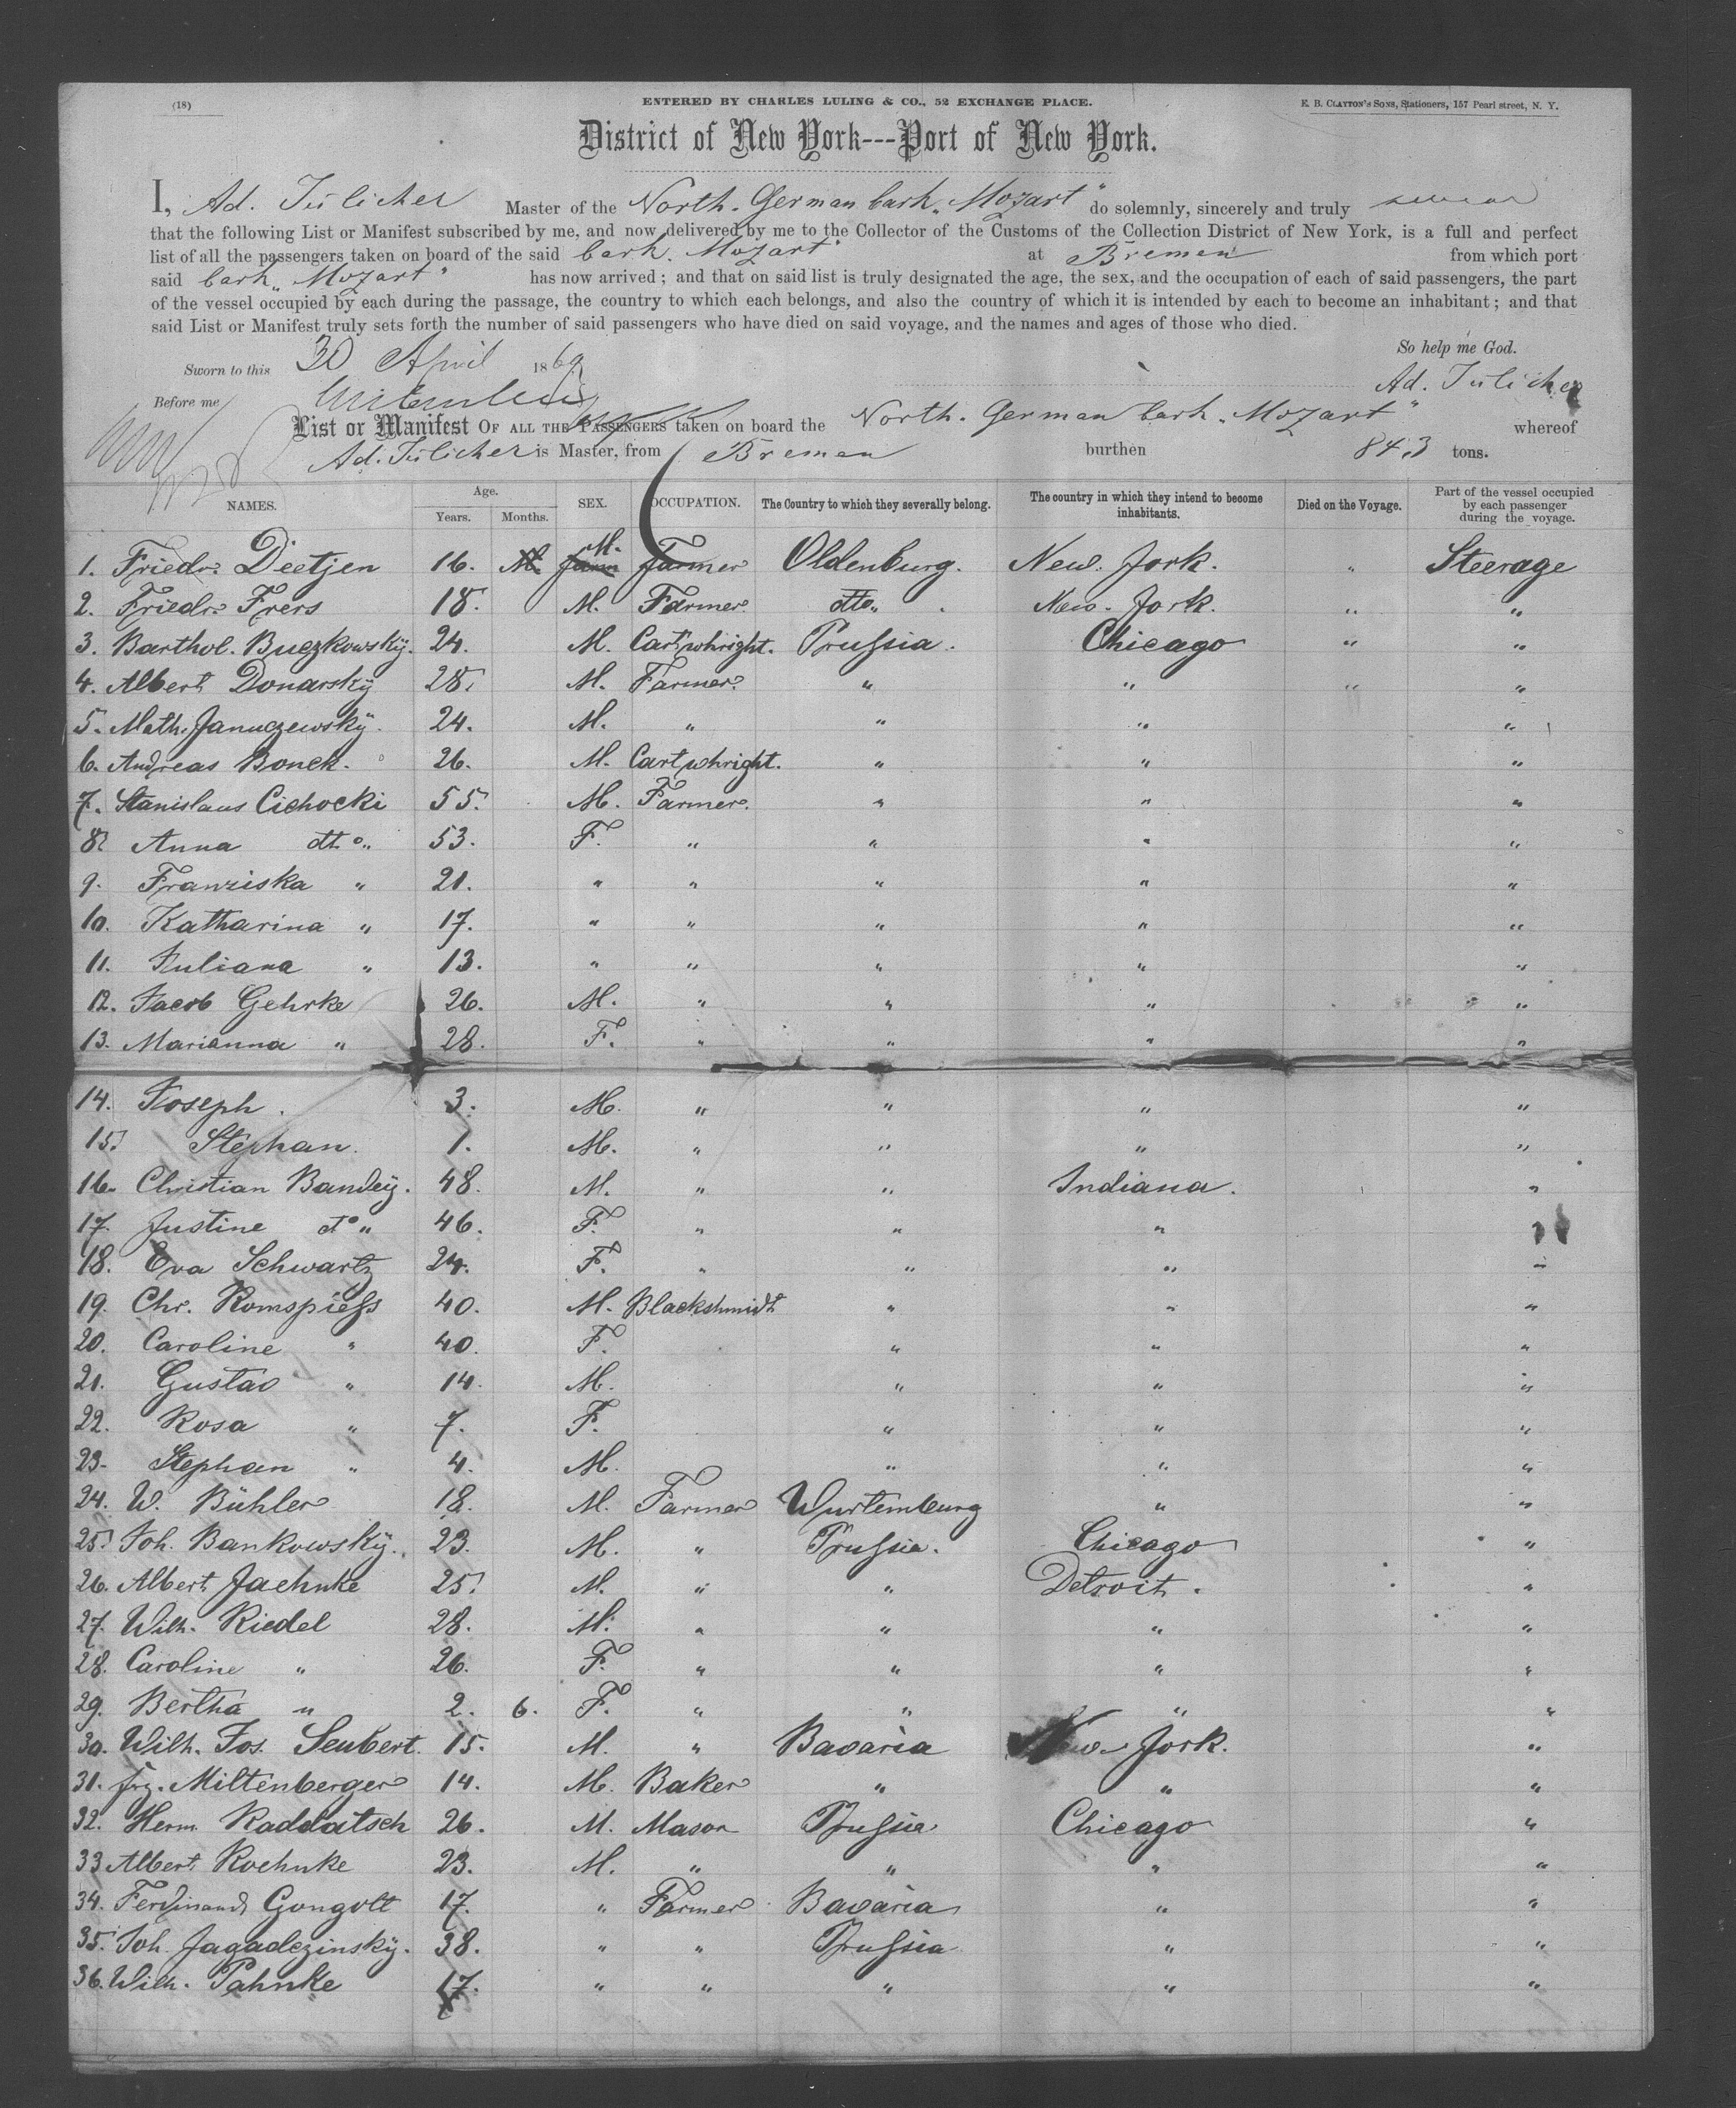 (18)
ENTERED BY CHARLES LULING & CO., 52 EXCHANGE PLACE.
E. B. CLAYTON'S SONS, Stationers, 157 Pearl street, N. Y.
District of New York---Port of New York.
I, Ad. Jülicher Master of the North. German bark „Mozart" do solemnly, sincerely and truly swear
that the following List or Manifest subscribed by me, and now delivered by me to the Collector of the Customs of the Collection District of New York, is a full and perfect
list of all the passengers taken on board of the said bark. Mozart" at Bremen from which port
said bark „Mozart" has now arrived; and that on said list is truly designated the age, the sex, and the occupation of each of said passengers, the part
of the vessel occupied by each during the passage, the country to which each belongs, and also the country of which it is intended by each to become an inhabitant; and that
said List or Manifest truly sets forth the number of said passengers who have died on said voyage, and the names and ages of those who died.
So help me God.
Sworn to this 30 April 1869
Ad. Jülicher
Before me
List or Manifest OF ALL THE PASSENGERS taken on board the North. German bark „Mozart" whereof
Ad. Jülicher is Master, from Bremen burthen 843 tons.
NAMES. Age. Years. Months. SEX. OCCUPATION. The Country to which they severally belong. The country in which they intend to become inhabitants. Died on the Voyage. Part of the vessel occupied by each passenger during the voyage.
1. Friedr. Deetjen 16. M. Farmer Oldenburg. New. Jork. " Steerage
2. Friedr. Frers 18. M. Farmer. dto„ New. Jork. " "
3. Barthol. Buczkowskÿ. 24. M. Cartwhright. Prußia. Chicago " "
4. Albert Donarskÿ 28. M. Farmer. " " " "
5. Math. Januczewskÿ. 24. M. " " " "
6. Andreas Bonek. 26. M. Cartwhright. " " "
7. Stanislaus Cichocki 55. M. Farmer. " " "
8. Anna dto„ 53. F. " " " "
9. Franziska " 21. " " " " "
10. Katharina " 17. " " " " "
11. Juliana " 13. " " " " "
12. Jacob Gehrke 26. M. " " " "
13. Marianna " 28. F. " " " "
14. Joseph. 3. M. " " " "
15. Stephan. 1. M. " " " "
16. Christian Bandeÿ. 48. M. " " Indiana. "
17. Justine do„ 46. F. " " " "
18. Eva Schwartz 24. F. " " " "
19. Chr. Romspieß 40. M. Blackshmidt " " "
20. Caroline " 40. F. " " "
21. Gustav " 14. M. " " "
22. Rosa " 7. F. " " "
23. Stephan " 4. M. " " "
24. W. Bühler 18. M. Farmer Wurtemburg " "
25. Joh. Bankowskÿ. 23. M. " Prußia. Chicago "
26. Albert Jaehnke 25. M. " " Detroit. "
27. Wilh. Riedel 28. M. " " " "
28. Caroline " 26. F. " " " "
29. Bertha " 2. 6. F. " " " "
30. Wilh. Jos. Seubert. 15. M. " Bavaria New. Jork. "
31. Frz. Miltenberger 14. M. Baker " " "
32. Herm. Raddatsch 26. M. Mason Prußia Chicago "
33 Albert Roehnke 23. M. " " " "
34. Ferdinand Gongolt 17. " Farmer Bavaria " "
35. Joh. Jagadczinskÿ. 38. " " Prußia " "
36. Wilh. Pahnke 17. " " " " "